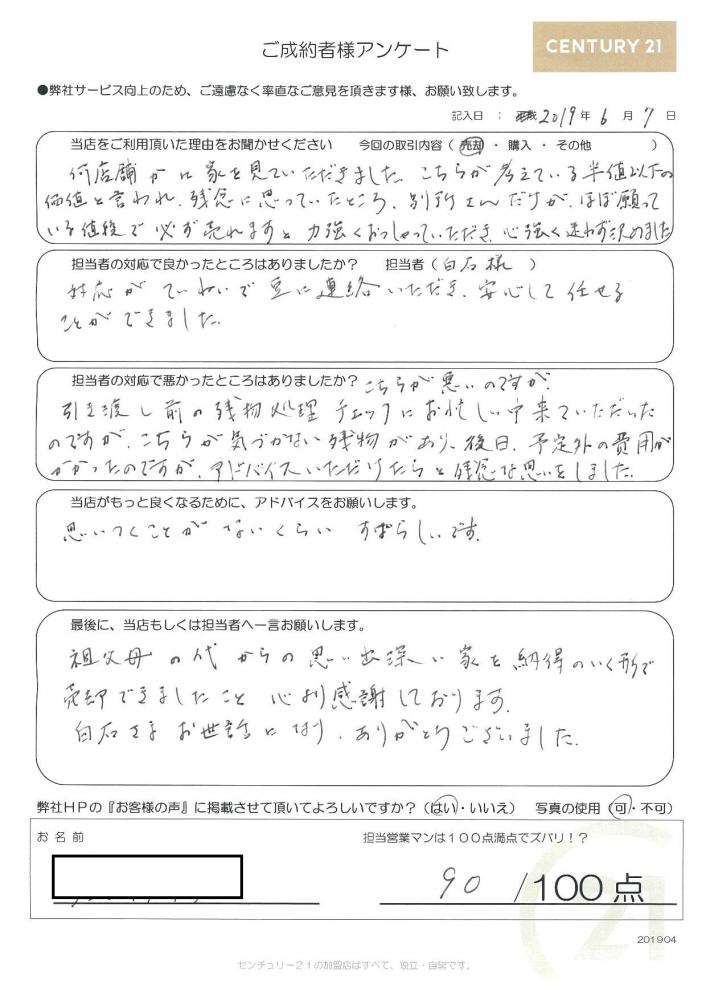 ご成約者様アンケート
CENTURY 21
●弊社サービス向上のため、ご遠慮なく率直なご意見を頂きます様、お願い致します。
記入日： 2019年 6月 7日
当店をご利用頂いた理由をお聞かせください 今回の取引内容（ 売却 ・ 購入 ・ その他 ）
何店舗かに家を見ていただきました。こちらが考えている半値以下の
価値と言われ、残念に思っていたところ、別所さんだけが、ほぼ願って
いる値段で必ず売れますと力強くおっしゃっていただき、心強く迷わず決めました
担当者の対応で良かったところはありましたか？ 担当者（白石様 ）
対応がていねいで豆に連絡いただき、安心して任せる
ことができました。
担当者の対応で悪かったところはありましたか？ こちらが悪いのですが、
引き渡し前の残物処理チェックにお忙しい中来ていただいた
のですが、こちらが気づかない残物があり、後日、予定外の費用が
かかったのですが、アドバイスいただけたらと残念な思いをしました。
当店がもっと良くなるために、アドバイスをお願いします。
思いつくことがないくらい すばらしいです。
最後に、当店もしくは担当者へ一言お願いします。
祖父母の代からの思い出深い家を納得のいく形で
売却できましたこと 心より感謝しております。
白石さま お世話になり、ありがとうございました。
弊社ＨＰの『お客様の声』に掲載させて頂いてよろしいですか？（はい・いいえ） 写真の使用（可・不可）
お名前
担当営業マンは１００点満点でズバリ！？
90 /100点
201904
センチュリー２１の加盟店はすべて、独立・自営です。